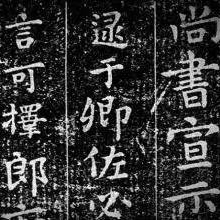 尚書宣示
逮于卿佐必
言可擇郎